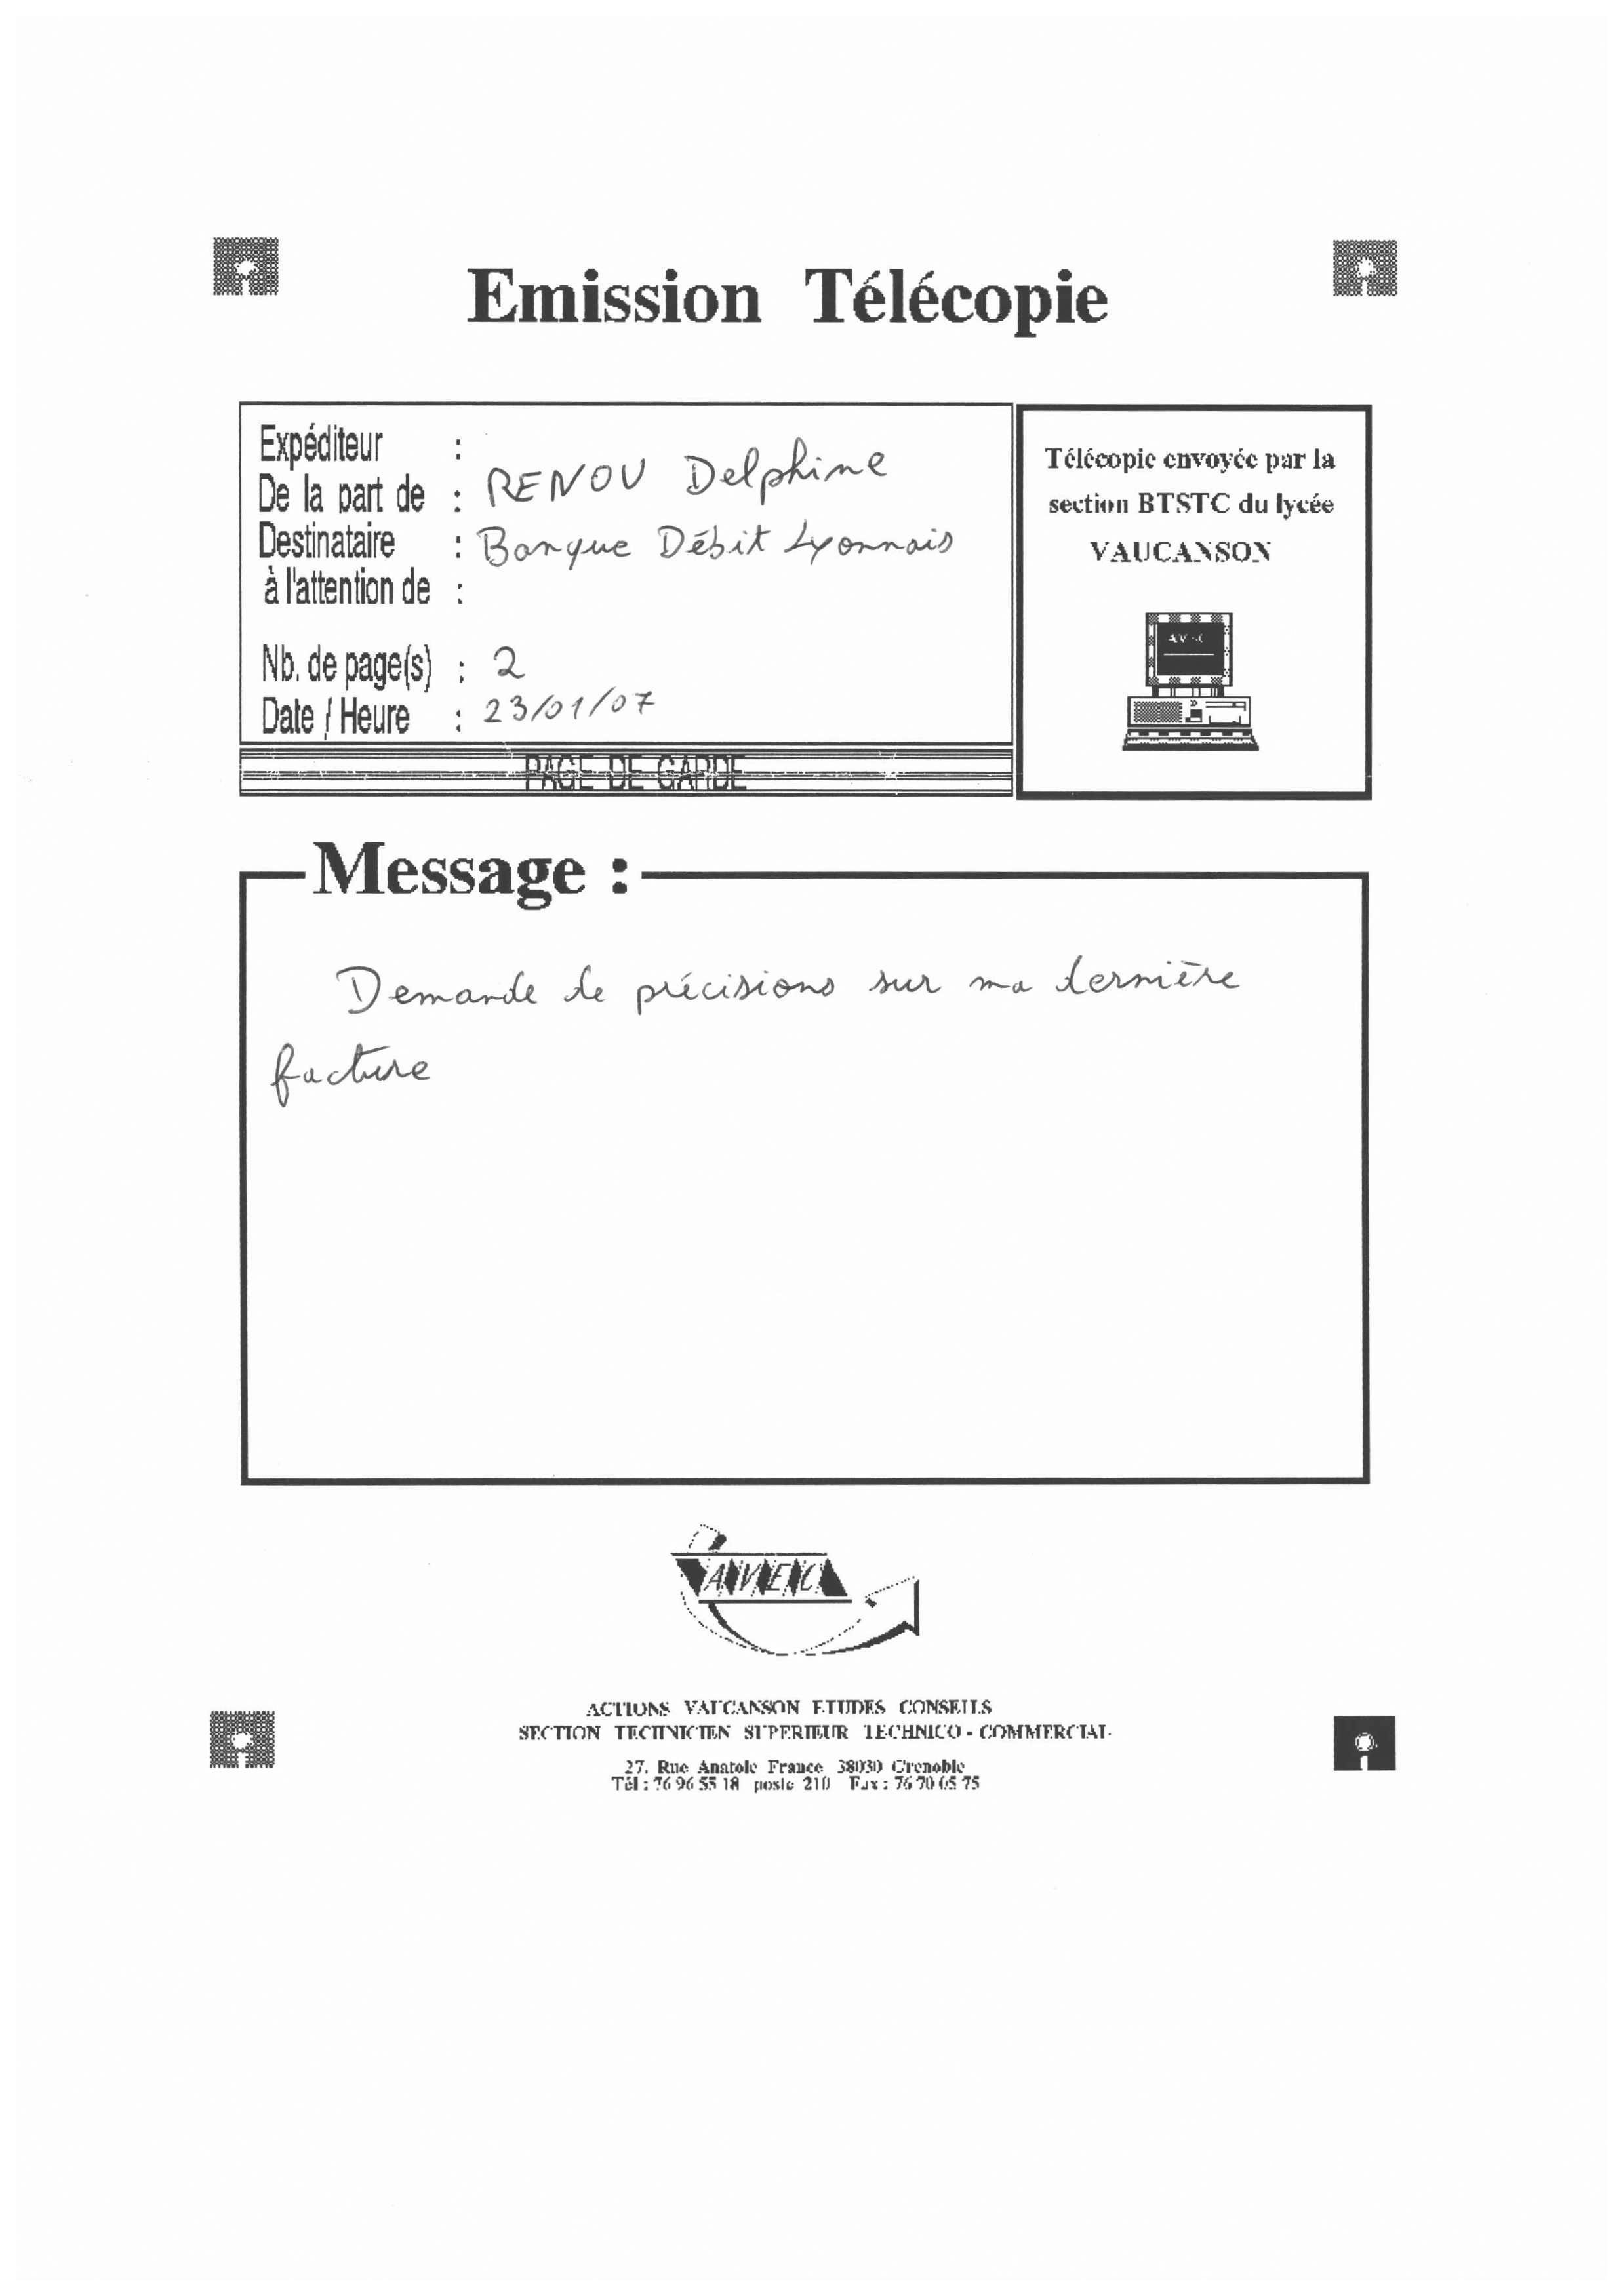 Emission Télécopie
Expéditeur :
De la part de : RENOU Delphine
Destinataire : Banque Débit Lyonnais
à l'attention de :
Nb. de page(s) : 2
Date / Heure : 23/01/07
PAGE DE GARDE
Télécopie envoyée par la
section BTSTC du lycée
VAUCANSON
Message :
Demande de précisions sur ma dernière
facture
AVEC
ACTIONS VAUCANSON ETUDES CONSEILS
SECTION TECHNICIEN SUPERIEUR TECHNICO - COMMERCIAL
27, Rue Anatole France 38030 Grenoble
Tél : 76 96 55 18 poste 210 Fax : 76 70 05 75